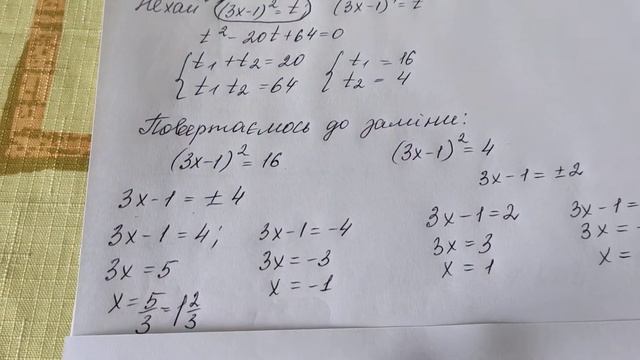 Нехай (3x-1)² = t; (3x-1)² = t
t² - 20t + 64 = 0
{ t₁ + t₂ = 20 { t₁ = 16
t₁ t₂ = 64 t₂ = 4
Повертаємось до заміни:
(3x-1)² = 16 (3x-1)² = 4
3x-1 = ± 4 3x-1 = ±2
3x-1 = 4; 3x-1 = -4 3x-1 = 2 3x-1 =
3x = 5 3x = -3 3x = 3 3x = -
x = 5/3 = 1 2/3 x = -1 x = 1 x =